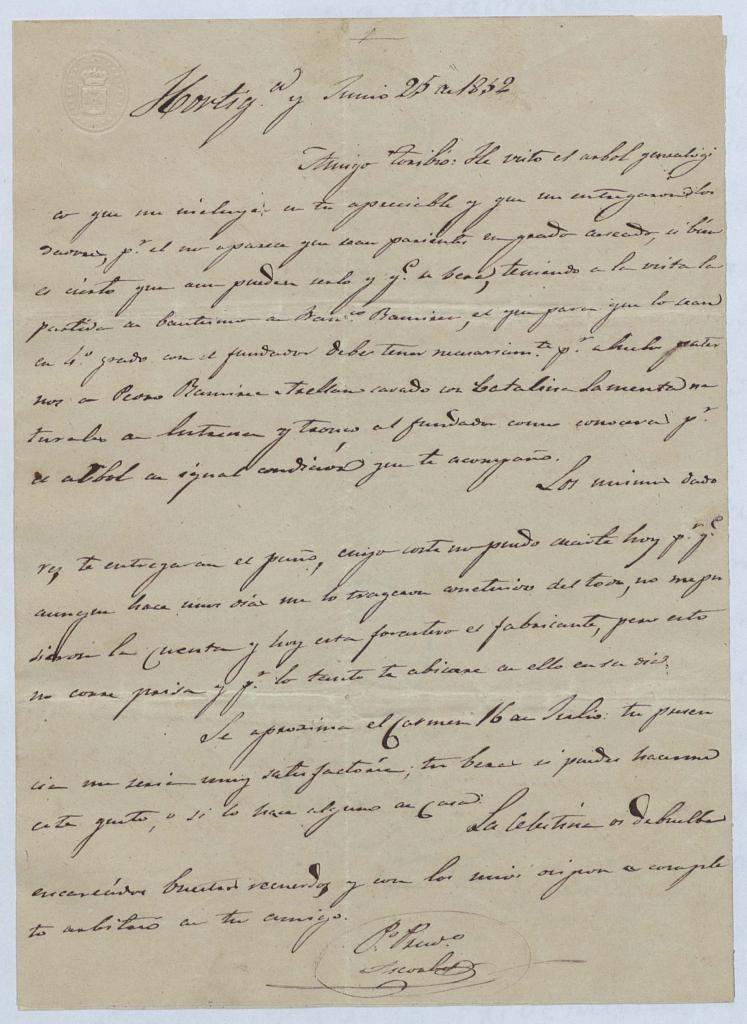 Hortig.ª y Junio 25 de 1852
Amigo Toribio: He visto el arbol genealogi
co que me incluyes en tu apreciable y que me entregaron los
dadores, p.r el no aparece que sean parientes en grado deseado, si bien
es cierto que aun pueden serlo y q.e se vera, teniendo a la vista la
partida de bautismo de Fran.co Ramirez, el que para que lo sean
en 4.º grado con el fundador debe tener necesariam.te p.r abuelos pater
nos a Pedro Ramirez Arellan casado con Catalina Lamenta na
turales de Entrena y tronco del fundador como conocerá p.r
el arbol de igual condición que te acompaño.
Los mismos dado
res te entregaran el paño, cuyo coste no puedo decirte hoy p.r q.e
aunque hace unos dias me lo trageron concluido del todo, no me pu
sieron la cuenta y hoy esta forastero el fabricante, pero esto
no corre prisa y p.r lo tanto te abisare de ello en su dia.
Se aproxima el Carmen 16 de Julio: tu presen
cia me seria muy satisfactoria; tu veras si puedes hacerme
este gusto, o si lo hace alguno de Casa.
La Celestina os debuelbe
encarecidos buestros recuerdos y con los mios dispon a comple
to arbitrio de tu amigo.
P.º Prud.º
Escobes